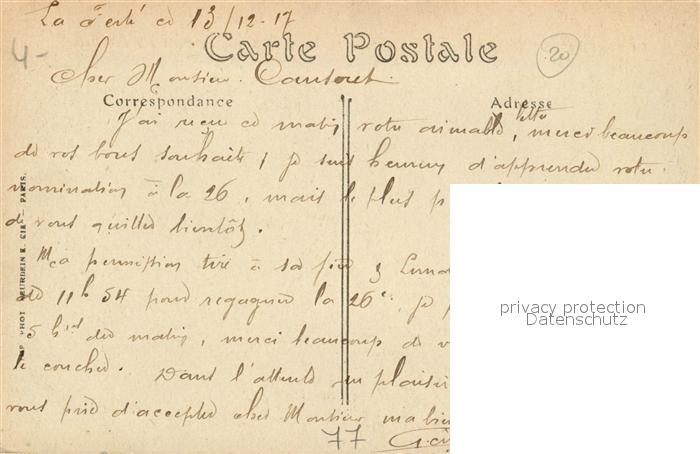 La Ferté ce 13/12-17
4-
Carte Postale
20
Cher Monsieur
Correspondance
Adresse
J'ai reçu ce matin votre aimable lettre, merci beaucoup
de vos bons souhaits, je suis heureux d'apprendre votre
nomination à la 26, mais le plus
de vous quitter bientôt.
Ma permission tire à sa fin
11h 54 pour regagner la 26e. je
privacy protection
Datenschutz
5h du matin, merci beaucoup de
le coucher. Dans l'attente du plaisir
vous prie d'accepter cher Monsieur
77
PHOT. NEURDEIN & CIE - PARIS.